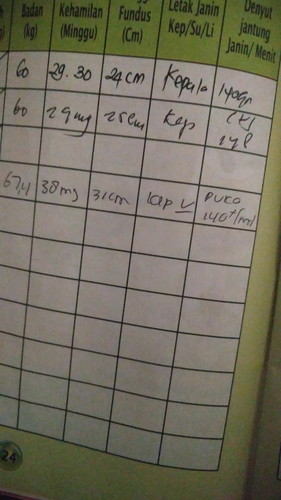 Badan Kehamilan Fundus Letak Janin Denyut
(kg) (Minggu) (Cm) Kep/Su/Li jantung
Janin/ Menit
60 29.30 24cm Kepala
60 29mg 25cm Kep
67,4 38mg 31cm kep PUKA
140
24